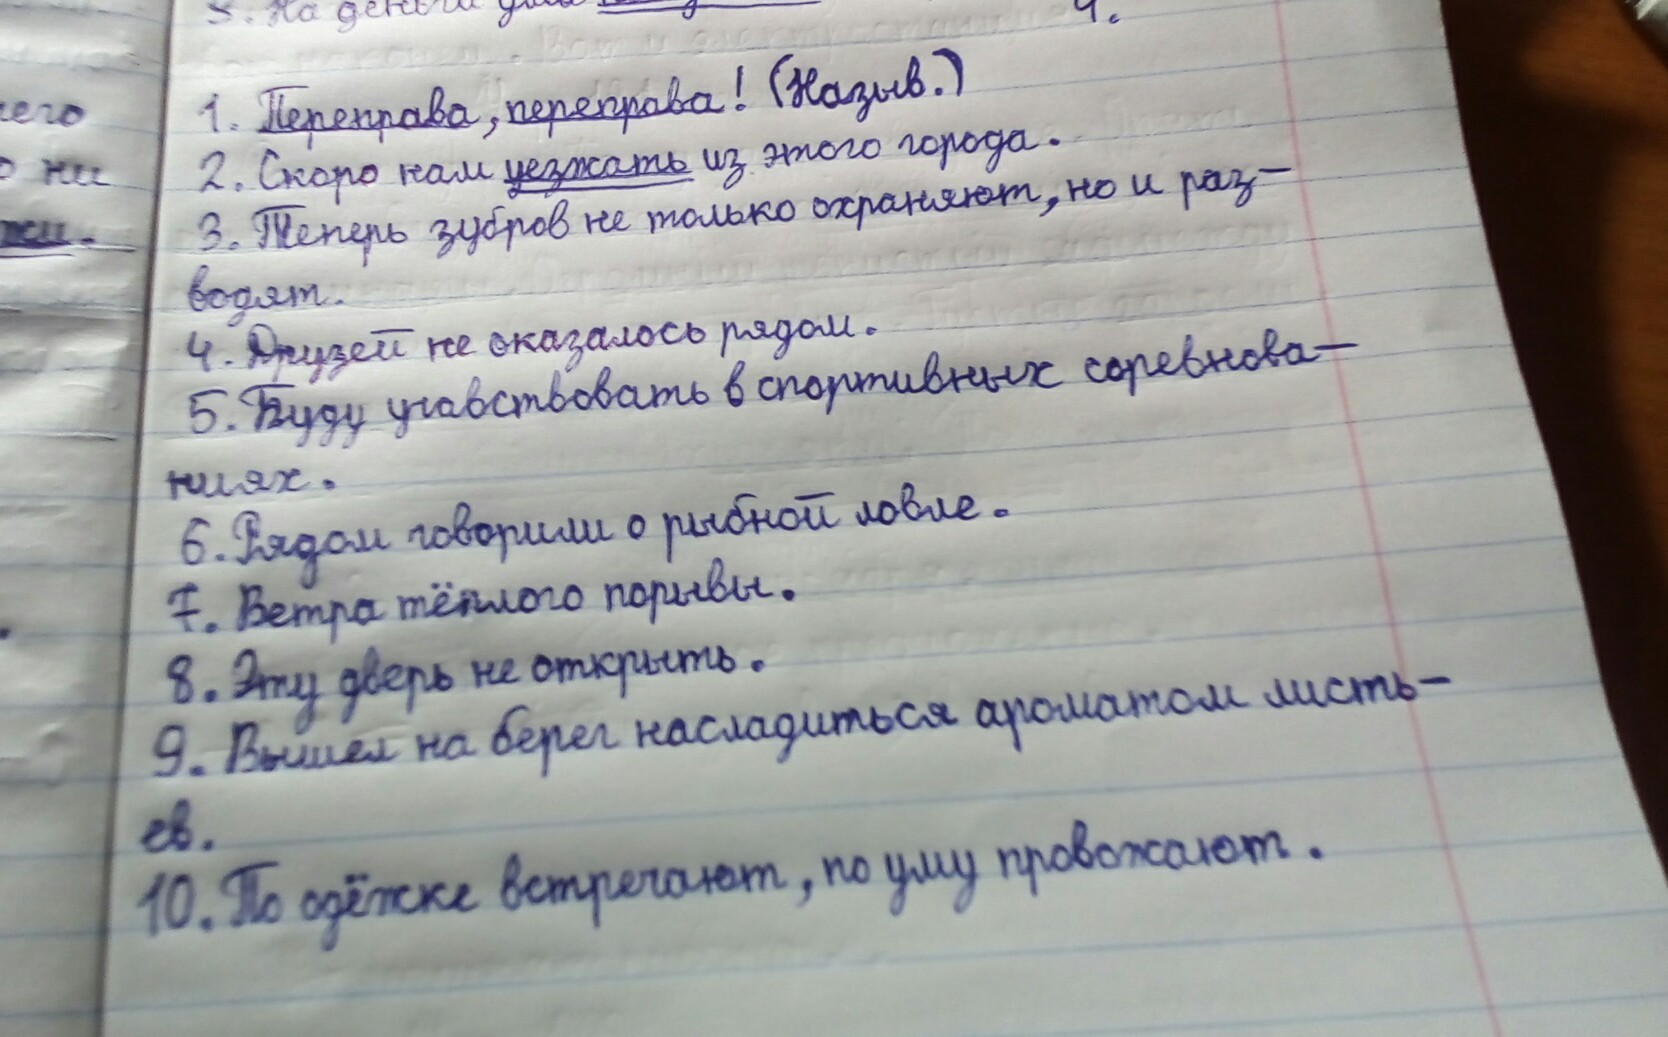 3. На деньги ума 4.
1. Переправа, переправа! (Назыв.)
его
2. Скоро нам уезжать из этого города.
ни
3. Теперь зубров не только охраняют, но и раз-
водят.
4. Друзей не оказалось рядом.
5. Буду учавствовать в спортивных соревнова-
ниях.
6. Рядом говорили о рыбной ловле.
7. Ветра тёплого порывы.
8. Эту дверь не открыть.
9. Вышел на берег насладиться ароматом листь-
ев.
10. По одёжке встречают, по уму провожают.